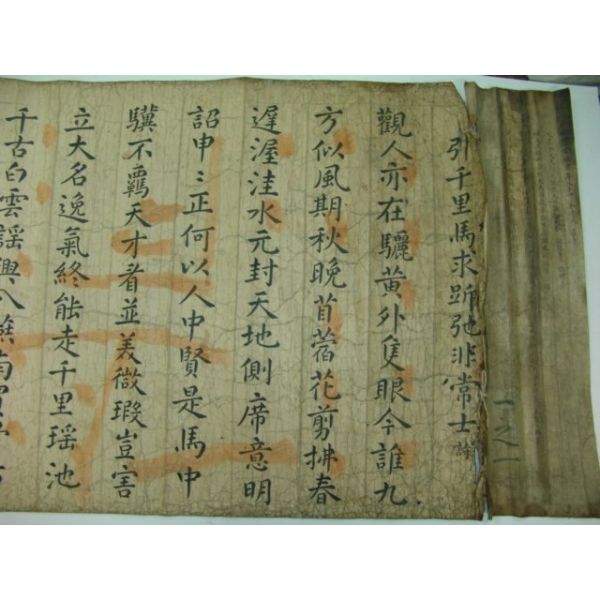 一之一
引千里馬求跅弛非常士
觀人亦在驪黃外隻眼今誰九
方似風期秋晚苜蓿花剪拂春
遲渥洼水元封天地側席意明
詔申〻正何以人中賢是馬中
驥不羈天才者並美微瑕豈害
立大名逸氣終能走千里瑤池
千古白雲謠興八